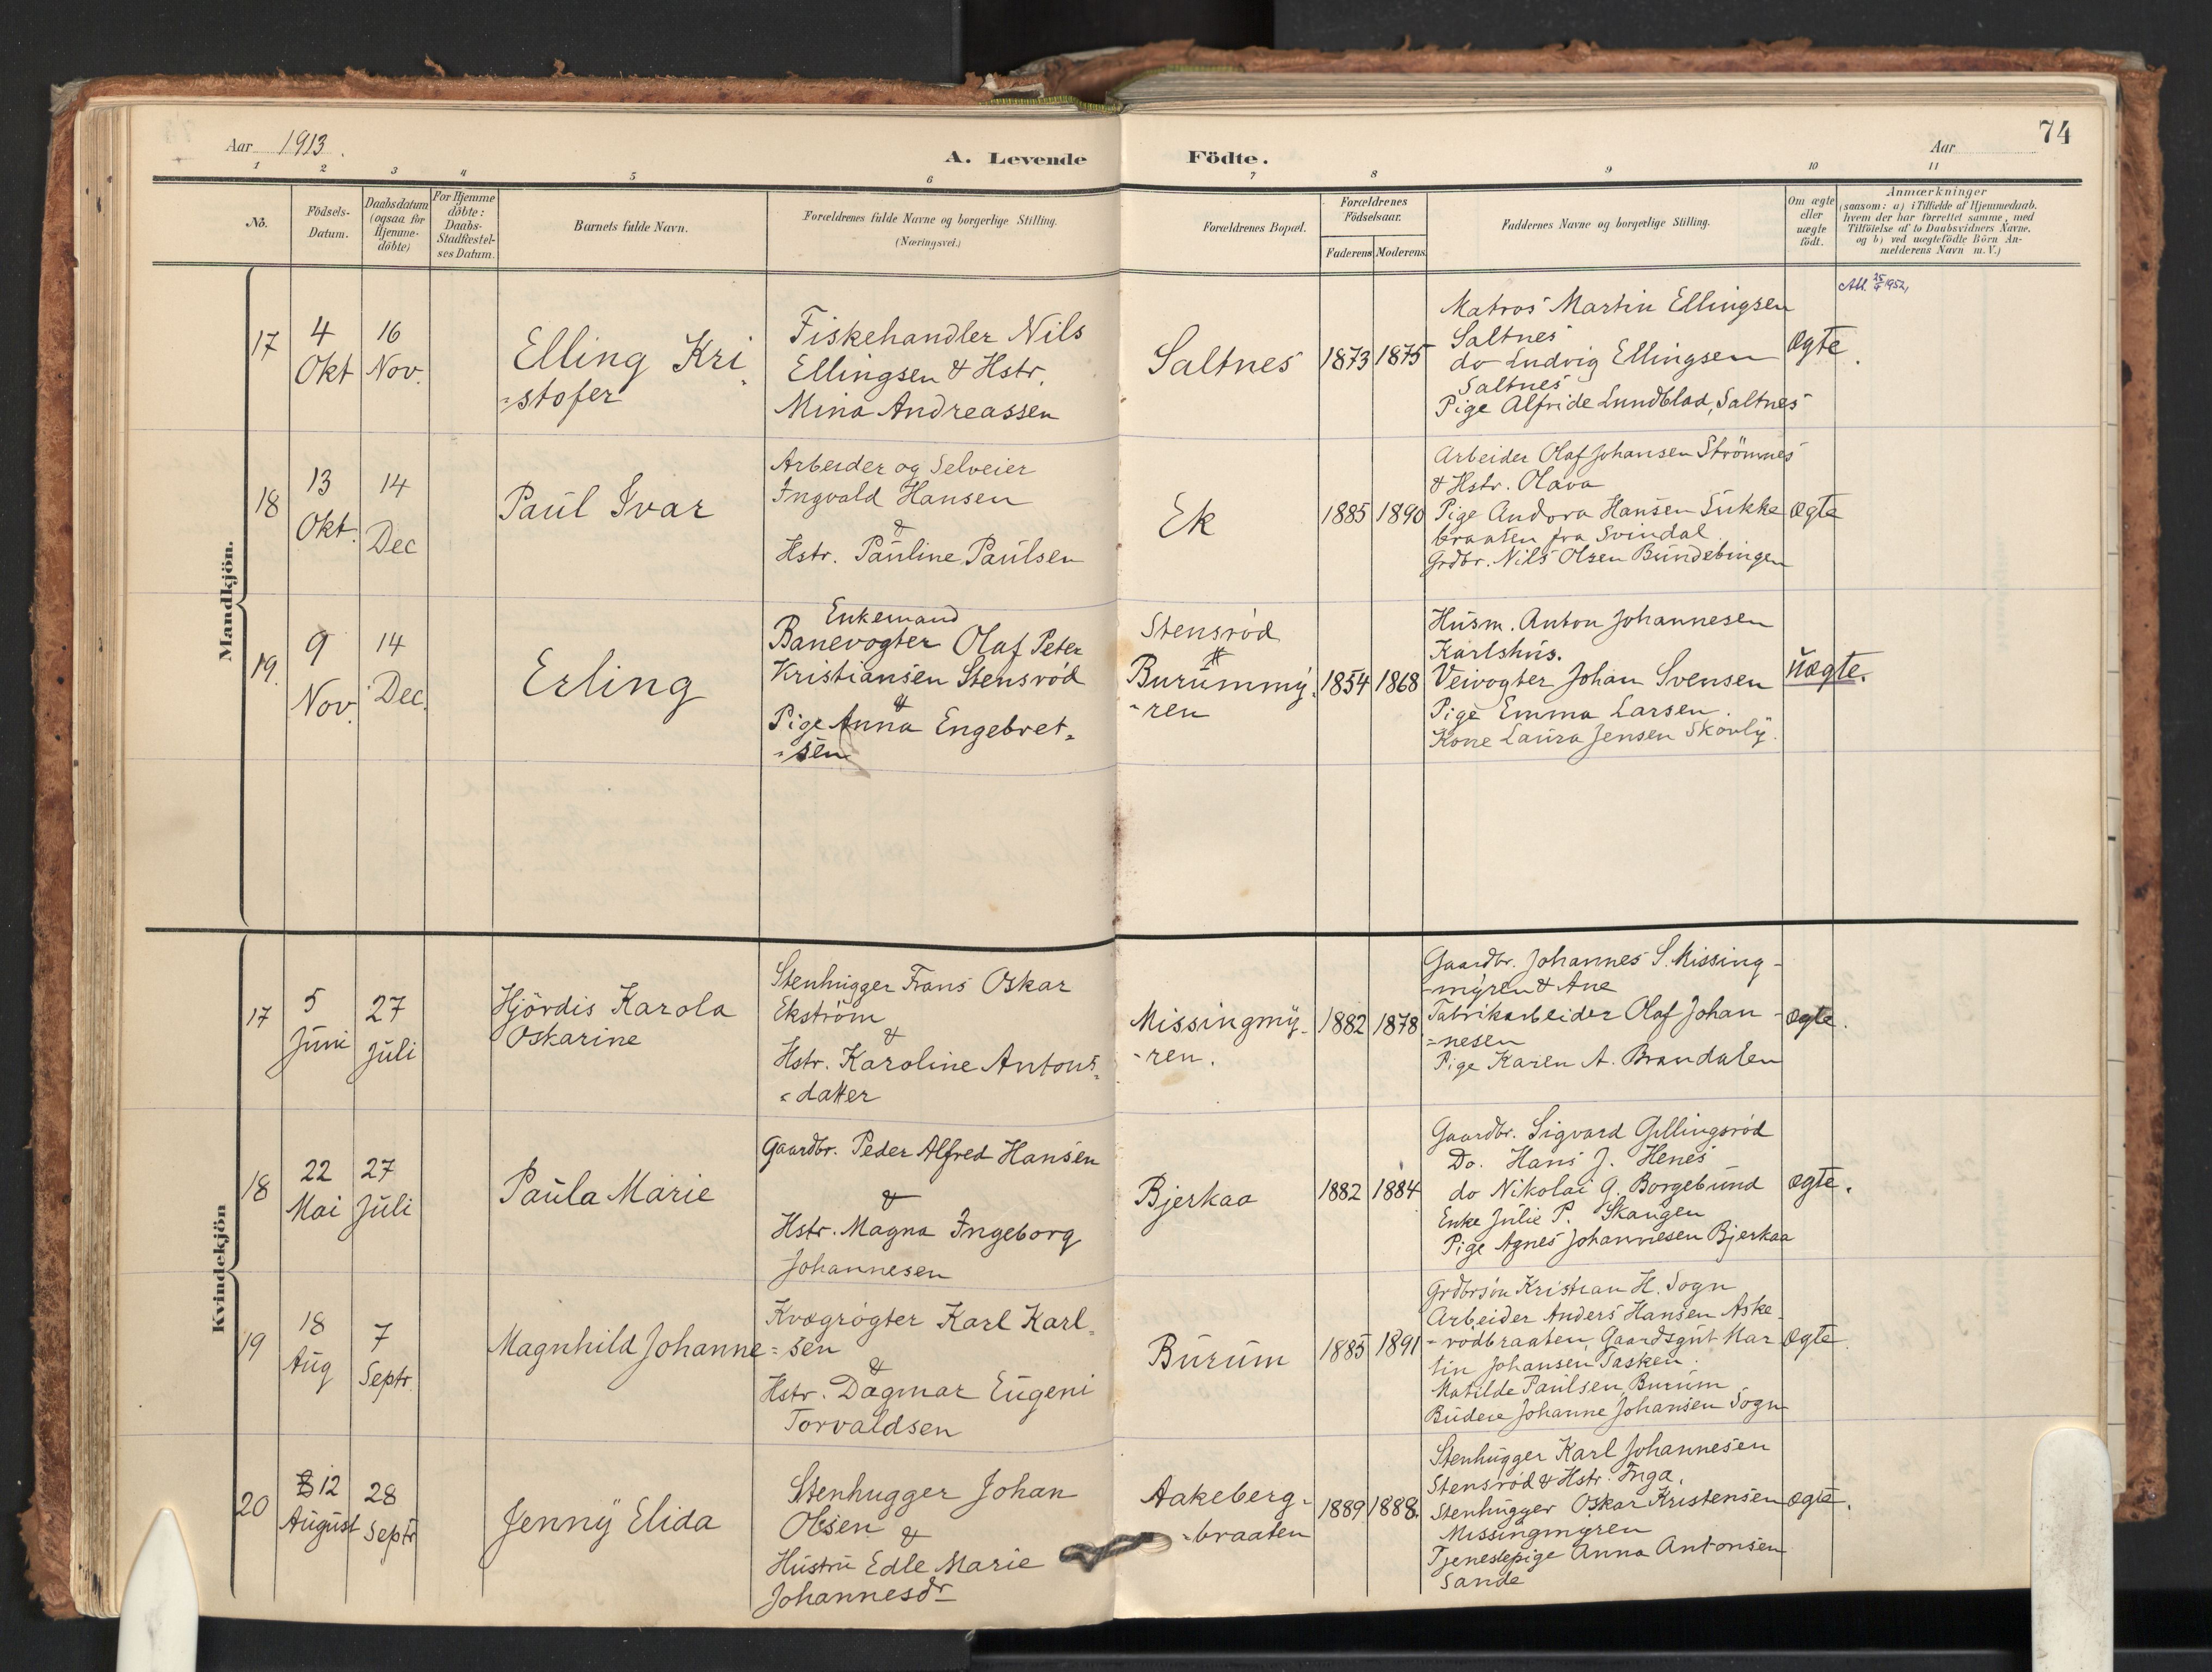 74
Aar 1913. A. Levende Födte. Aar
1 2 3 4 5 6 7 8 9 10 11
No.
Födsels-
Datum.
Daabsdatum
(ogsaa for
Hjemme-
döbte)
For Hjemme
döbte:
Daabs-
Stadfæstel-
ses Datum.
Barnets fulde Navn.
Forældrenes fulde Navne og borgerlige Stilling.
(Næringsvei.)
Forældrenes Bopæl.
Forældrenes
Födselsaar.
Faderens Moderens
Faddernes Navne og borgerlige Stilling.
Om ægte
eller
uægte
födt.
Anmærkninger
(saasom: a) i Tilfælde af Hjemmedaab.
hvem der har forrettet samme, med
Tilföielse af to Daabsvidners Navne.
og b) ved uægtefödte Börn An-
melderens Navn m.V.)
Mandkjön.
17
4
Okt
16
Nov.
Elling Kri
=stofer
Fiskehandler Nils
Ellingsen & Hstr.
Mina Andreassen
Saltnes
1873 1875
Matros Martin Ellingsen
Saltnes
do Ludvig Ellingsen
Saltnes
Pige Alfride Lundblad, Saltnes
Ægte.
1952,
18
13
Okt.
14
Dec
Paul Ivar
Arbeider og Selveier
Ingvald Hansen
&
Hstr. Pauline Paulsen
Ek
1885 1890
Arbeider Olaf Johansen Strömnes
& Hstr. Olava
Pige Andora Hansen Sukke
braaten fra Svindal
Grdbr. Nils Olsen Bundebingen
Ægte
19.
9
Nov.
14
Dec.
Erling
Enkemand
Banevogter Olaf Peter
Kristiansen Stensröd
&
Pige Anna Engebret=
=sen
Stensröd
Burummy=
=ren
1854 1868
Husm. Anton Johannesen
Karlshus.
Veivogter Johan Svensen
Pige Emma Larsen.
Kone Laura Jensen Skovly.
Uægte.
Kvindekjön
17
5
Juni
27
Juli
Hjördis Karola
Oskarine
Stenhugger Frans Oskar
Ekström
&
Hstr. Karoline Antons=
=datter
Missingmy=
=ren.
1882 1878
Gaardbr. Johannes S. Missing-
=myren & Ane
Fabrikarbeider Olaf Johan-
=nesen
Pige Karen A. Brandalen
Ægte.
18
22
Mai
27
Juli
Paula Marie
Gaardbr. Peder Alfred Hansen
&
Hstr. Magna Ingeborg
Johannesen
Bjerkaa
1882 1884
Gaardbr. Sigvard Gillingsröd
Do. Hans J. Henes
do Nikolai G. Borgebund
Enke Julie P. Skaugen
Pige Agnes Johannesen Bjerkaa
Ægte.
19
18
Aug
7
Septr.
Magnhild Johanne
Kvægrögter Karl Karl=
=sen
&
Hstr. Dagmar Eugeni
Torvaldsen
Burum
1885 1891
Grdbrsön Kristian H. Sogn
Arbeider Anders Hansen Aske
=rödbraaten, Gaardsgut Mar
tin Johansen Tasken.
Matilde Paulsen, Burum
Budeie Johanne Johansen Sogn
Ægte.
20
12
August
28
Septr
Jenny Elida
Stenhugger Johan
Olsen &
Hustru Edle Marie
Johannesdr
Aakeberg=
=braaten
1889 1888.
Stenhugger Karl Johannesen
Stensröd & Hstr. Inga.
Stenhugger Oskar Kristensen
Missingmyren
Tjenestepige Anna Antonsen
Sande
Ægte.